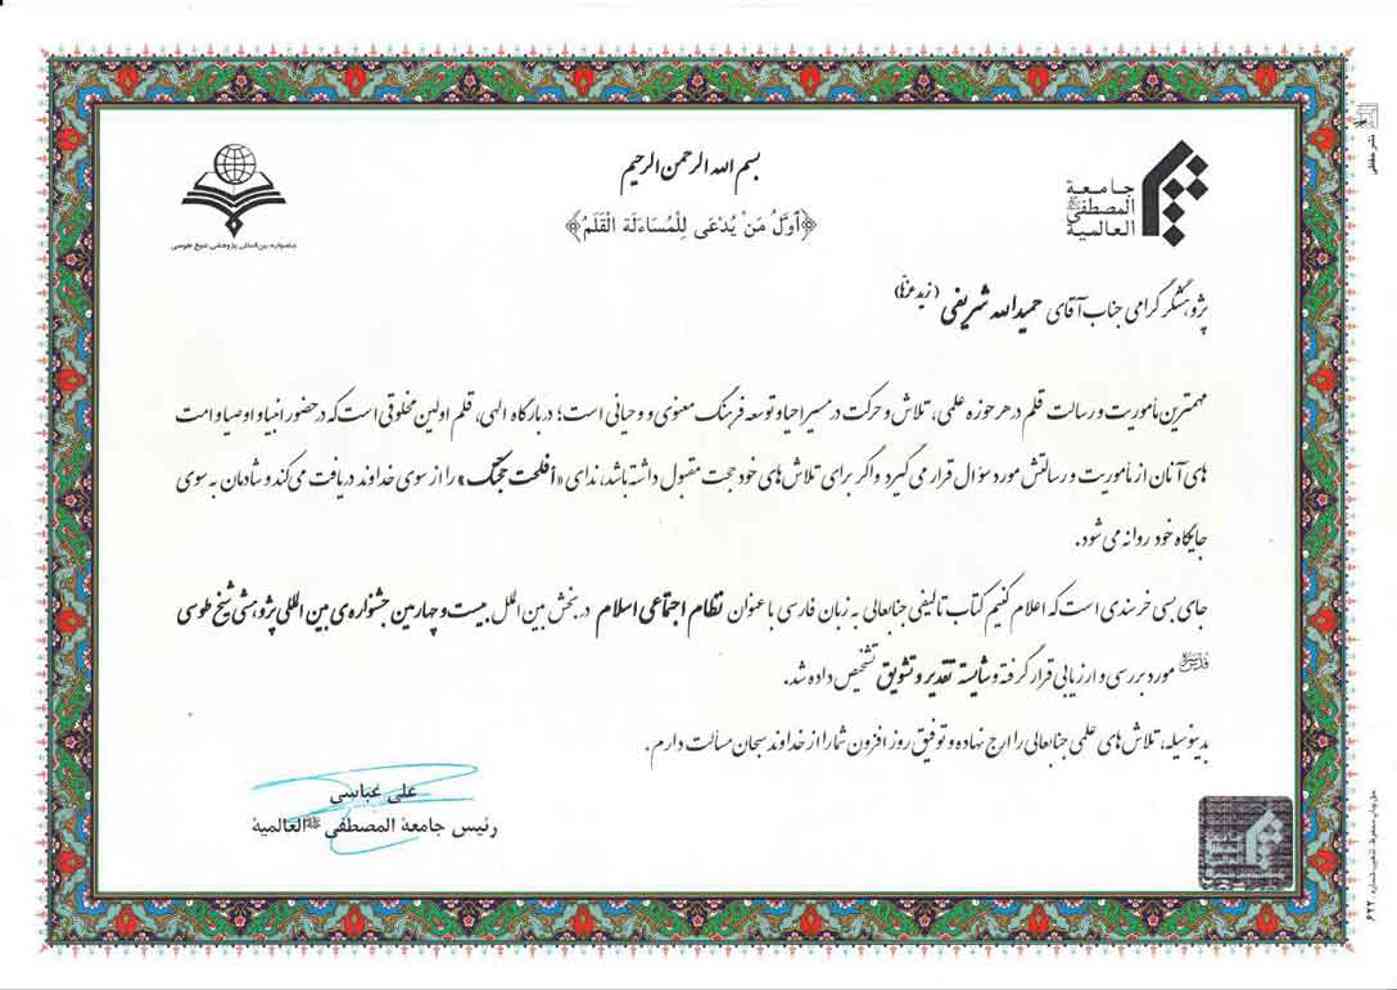 بسم الله الرحمن الرحیم
﴿أَوَّلُ مَنْ يُدْعَى لِلْمُسَاءَلَة الْقَلَمُ﴾
جامعة
المصطفی ﷺ
العالمیة
جشنواره بین‌المللی پژوهشی شیخ طوسی
پژوهشگر گرامی جناب آقای حمیدالله شریفی (زید عزه)
مهمترین مأموریت و رسالت قلم در هر حوزه علمی، تلاش و حرکت در مسیر احیا و توسعه فرهنگ معنوی و وحیانی است؛ در بارگاه الهی، قلم اولین مخلوقی است که در حضور انبیا و اوصیا و امت
های آنان از مأموریت و رسالتش مورد سؤال قرار می گیرد و اگر برای تلاش های خود حجت مقبول داشته باشد، ندای «أفلحت حجتک» را از سوی خداوند دریافت می کند و شادمان به سوی
جایگاه خود روانه می شود.
جای بسی خرسندی است که اعلام کنیم کتاب تالیفی جنابعالی به زبان فارسی با عنوان نظام اجتماعی اسلام در بخش بین الملل بیست و چهارمین جشنواره ی بین المللی پژوهشی شیخ طوسی
قدس سره مورد بررسی و ارزیابی قرار گرفته و شایسته تقدیر و تشویق تشخیص داده شد.
بدینوسیله، تلاش های علمی جنابعالی را ارج نهاده و توفیق روز افزون شما را از خداوند سبحان مسألت دارم.
علی عباسی
رئیس جامعة المصطفی ﷺ العالمیة